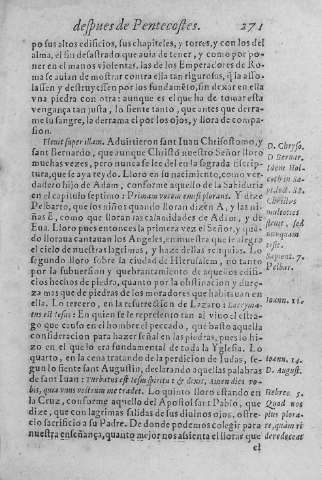 despues de Pentecostes. 271
po sus altos edificios, sus chapiteles, y torres, y con los del
alma, el fin desastrado que auia de tener, y como por po-
ner en el manos violentas, las de los Emperadores de Ro-
ma se auian de mostrar contra ella tan rigurosas, q̃ la asso-
lassen y destruyessen por los fundamẽtos, sin dexar en ella
vna piedra con otra: aunque es el que ha de tomar esta
vengança tan justa, lo siente tanto, que antes que derra-
me su sangre, la derrama el por los ojos, y llora de compa-
sion.
Fleuit super illam. Aduirtieron sant Iuan Chrisostomo, y
sant Bernardo, que aunque Christo nuestro Señor lloro
muchas vezes, pero nunca se lee del en la sagrada Escrip-
tura, que se aya reydo. Lloro en su nacimiento, como ver-
dadero hijo de Adam, conforme aquello de la Sabiduria
en el capitulo septimo: Primam vocem emisi plorans. Y dize
Pelbarto, que los niños quando lloran dizen A, y las ni-
ñas E, como que lloran las calamidades de Adam, y de
Eua. Lloro pues entonces la primera vez el Señor, y quã-
do lloraua cantauan los Angeles, en muestra que le alegra
el cielo de nuestras lagrimas, y haze dellas
segundo lloro sobre la ciudad de Hierusalem, no tanto
por la subuersion y quebrantamiento de aquellos edifi-
cios hechos de piedra, quanto por la obstinacion y dure-
za mas que de piedra de los moradores que habitauan en
ella. Lo tercero, en la resurreccion de Lazaro: Lacryma-
tus est Iesus: En quien se le represento tan al viuo el estra-
go que causo en el hombre el peccado, que basto aquella
consideracion para hazer señal en las piedras, pues lo hi-
zo en el que lo era fundamental de toda la Yglesia. Lo
quarto, en la cena tratando de la perdicion de Iudas, se-
gun lo siente sant Augustin, declarando aquellas palabras
de sant Iuan: Turbatus est Iesus spiritu: & dixit, Amen dico vo-
bis, quia vnus vestrum me tradet. Lo quinto lloro estando en
la Cruz, conforme aquello del Apostol sant Pablo, que
dize, que con lagrimas salidas de sus diuinos ojos, ofre-
cio sacrificio a su Padre. De donde podemos colegir para
nuestra enseñança, quanto mejor nos assienta el llorar que
el
D. Chryso.
D Bernar.
Idem Hol-
coth in Sa-
pi. lect. 82.
Christus
multoties
fleuit, sed
nunquam
risit.
Sapient. 7.
Pelbar.
Ioann. 11.
Ioann. 14.
D. August.
Hebreo. 5.
Quod nos
plus plora-
re, quàm ri
dere deceat